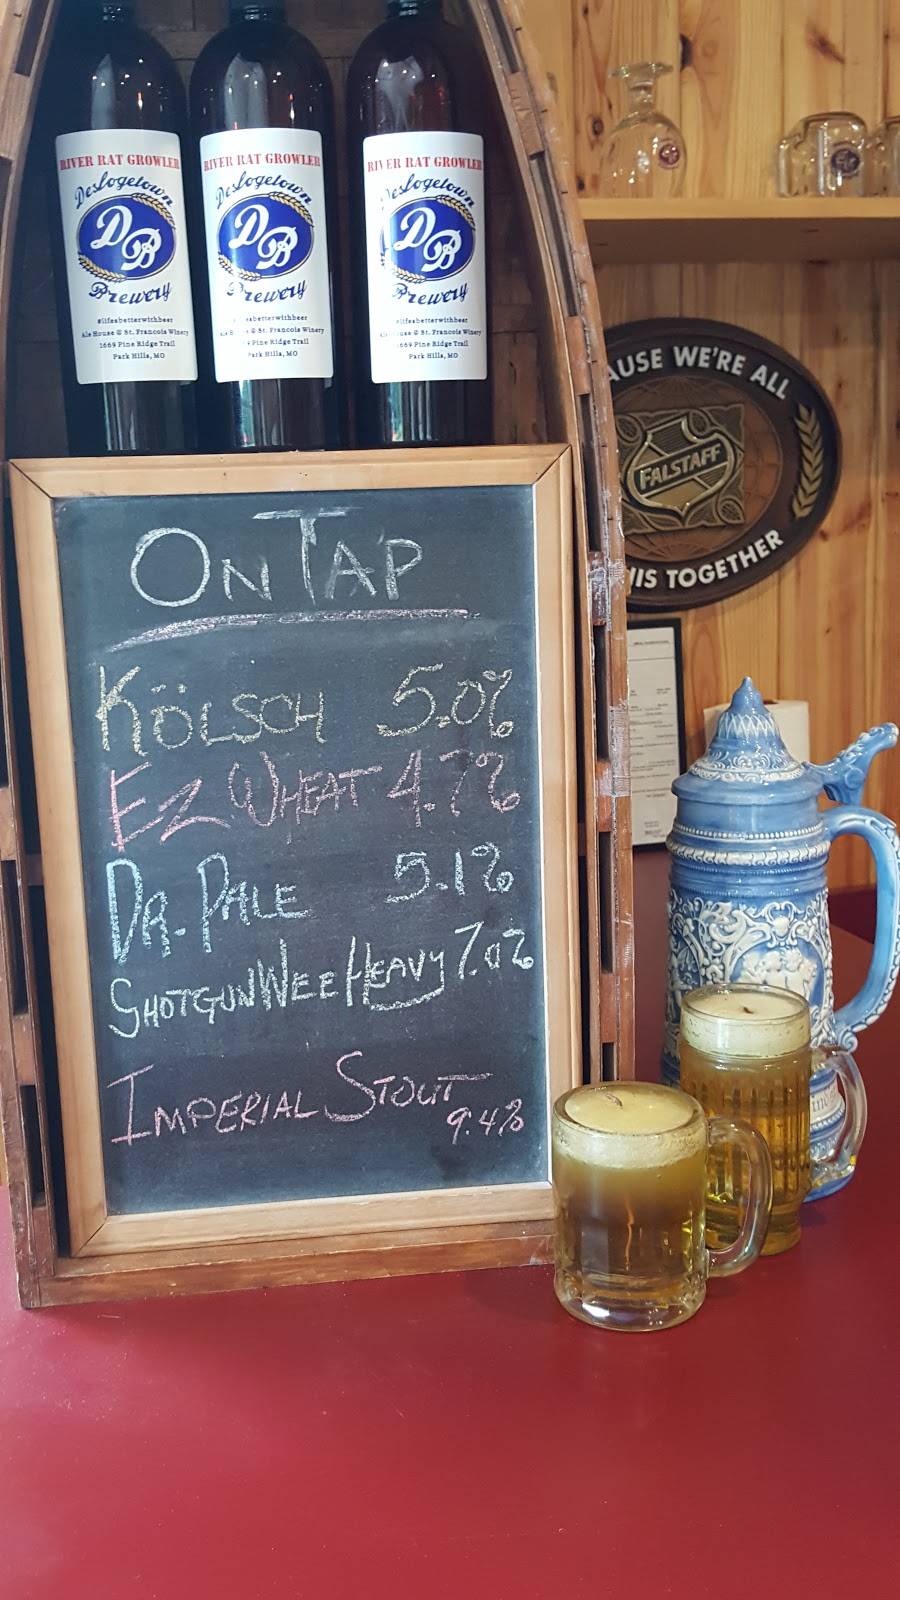 RIVER RAT GROWLER
Deslogetown
DB
Brewery
#lifesabetterwithbeer
Ale House @ St. Francois Winery
1669 Pine Ridge Trail
Park Hills, MO
RIVER RAT GROWLER
Deslogetown
DB
Brewery
St. Francois Winery
Pine Ridge Trail
Park Hills, MO
RIVER RAT GROWLER
Deslogetown
DB
Brewery
#lifesabetterwithbeer
Ale House @ St. Francois Winery
1669 Pine Ridge Trail
Park Hills, MO
AUSE WE'RE ALL
FALSTAFF
HIS TOGETHER
ON TAP
KÖLSCH 5.0%
EZ WHEAT 4.7%
DR. PALE 5.1%
SHOTGUN WEE HEAVY 7.0%
IMPERIAL STOUT
9.4%